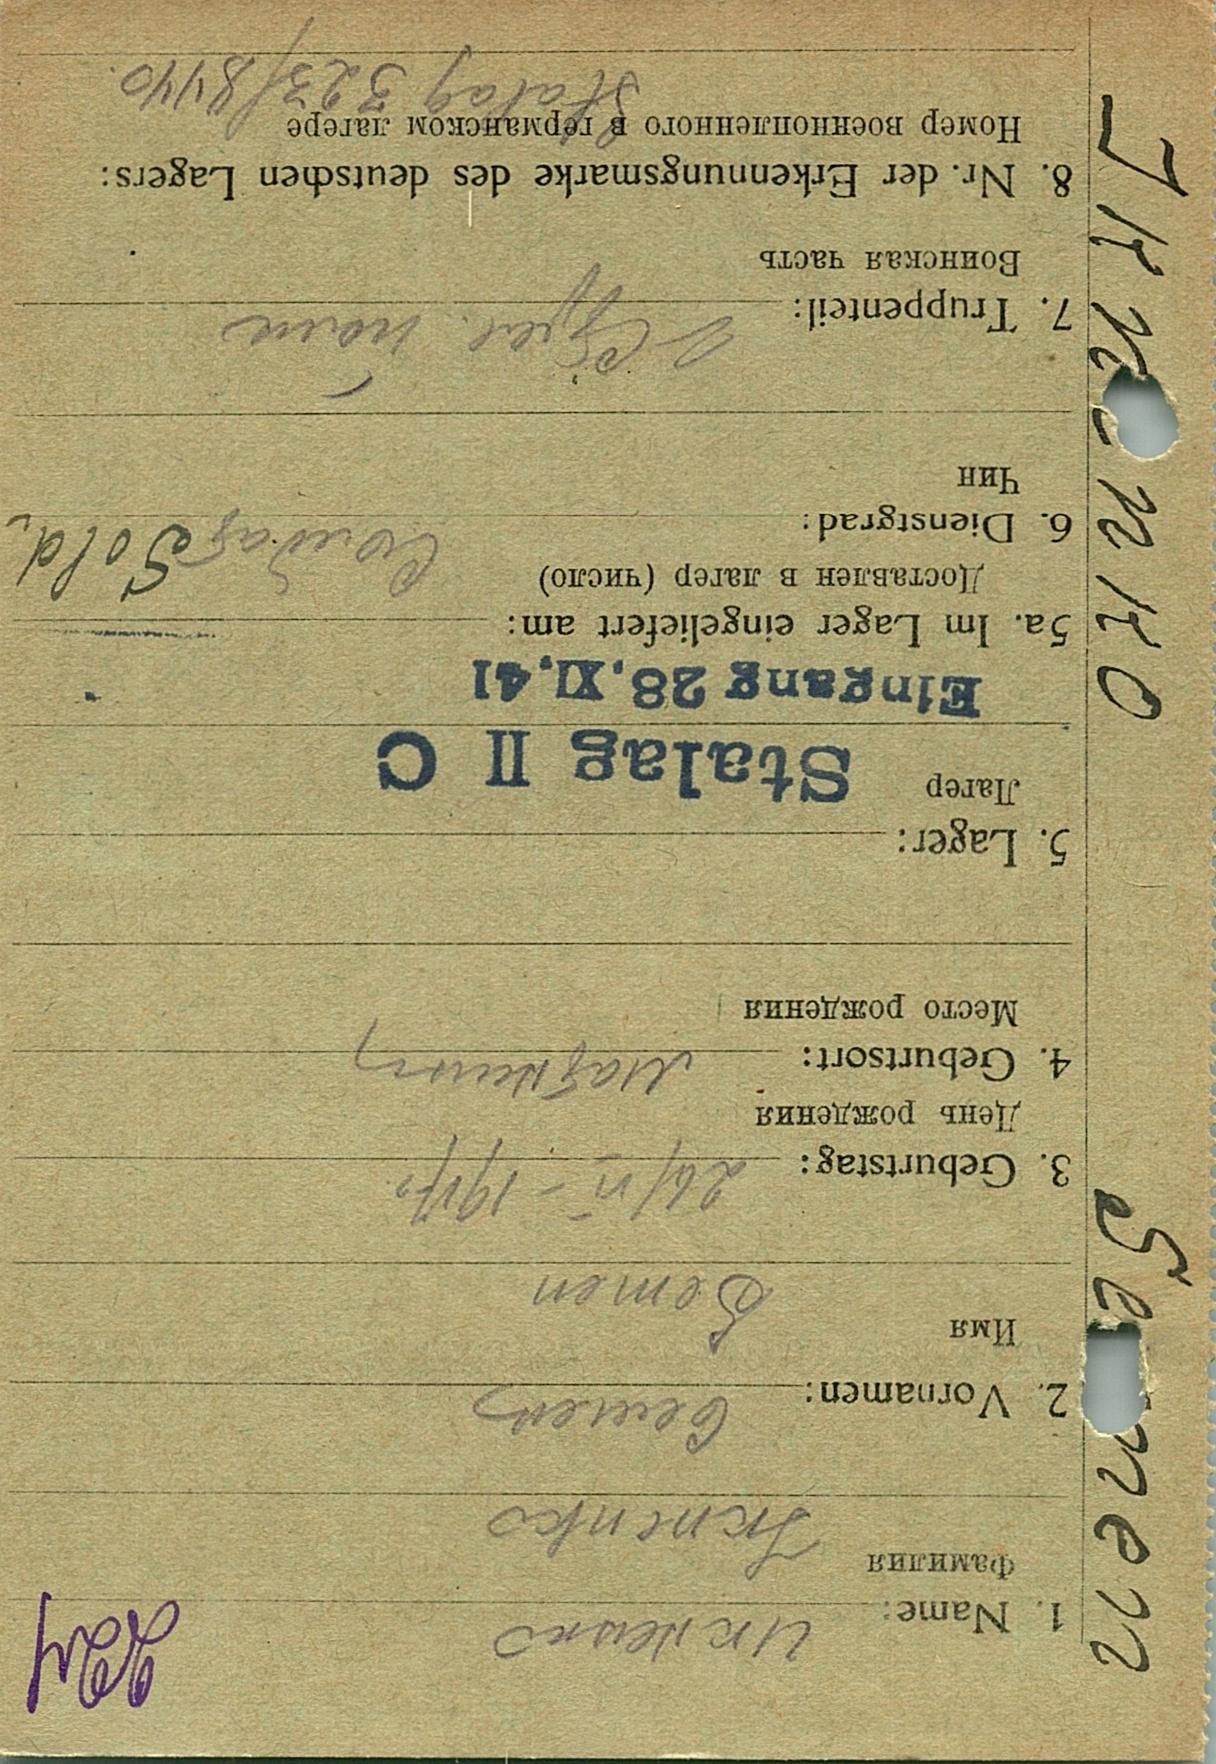 1. Name: Икненко
Фамилия Iknenko
2. Vornamen: Семен
Имя Semen
3. Geburtstag: 26/VI – 1917
День рождения
4. Geburtsort:
Место рождения
5. Lager:
Лагер Stalag II C
Eingang 28. XI. 41
5a. Im Lager eingeliefert am:
Доставлен в лагер (число)
6. Dienstgrad: Солдат Sold.
Чин
7. Truppenteil:
Воинская часть
8. Nr. der Erkennungsmarke des deutschen Lagers:
Номер военнопленного в германском лагере
Stalag 323/8440.
Semen Iknenko